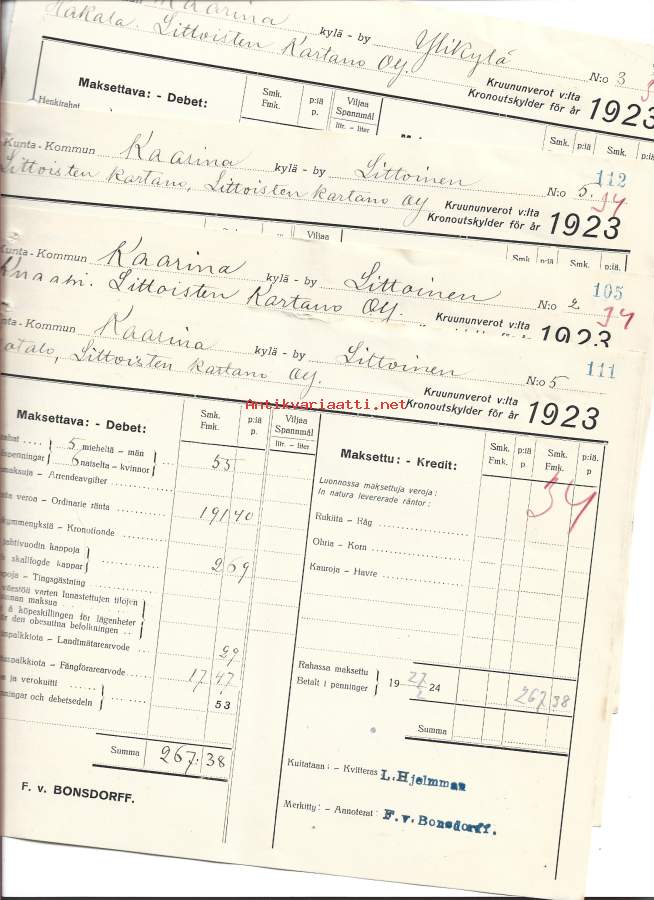 Kaarina kylä - by Ylikylä N:o 3
Hakala. Littoisten Kartano Oy.
Kruununverot v:lta
Kronoutskylder för år 1923
Maksettava: - Debet:
Smk. Fmk. p:iä p. Viljaa Spannmål litr. - liter
Henkirahat
Smk. p:iä Smk. p:iä
Kunta - Kommun Kaarina kylä - by Littoinen N:o 5. 112
Littoisten kartano, Littoisten kartano Oy 34
Kruununverot v:lta
Kronoutskylder för år 1923
Viljaa
Smk. p:iä Smk. p:iä
Kunta - Kommun Kaarina kylä - by Littoinen N:o 2 105
Knaapi. Littoisten Kartano Oy. 34
Kruununverot v:lta
1923
nta - Kommun Kaarina kylä - by Littoinen N:o 5 111
otalo, Littoisten kartano Oy.
Kruununverot v:lta
Kronoutskylder för år 1923
Antikvariaatti.net
Maksettava: - Debet:
Smk. Fmk. p:iä p. Viljaa Spannmål litr. - liter
rahat 5 mieheltä - män
spenningar 6 naiselta - kvinnor 55
maksuja - Arrendeavgifter
nta veroa - Ordinarie ränta 191 40
kymmenyksiä - Kronotionde
lahtivuodin kappoja
skallfogde kappar 2 69
ppoja - Tingsgästning
väestöä varten lunastettujen tilojen
innan maksua
å köpeskillingen för lägenheter
för den obesutna befolkningen
npalkkiota - Landtmätarearvode 29
uspalkkiota - Fångförarearvode 17 47
a ja verokuitti
nningar och debetsedeln 53
Summa 267:38
F. v. BONSDORFF.
Maksettu: - Kredit:
Smk. Fmk. p:iä p Smk. Fmk. p:iä. p
34
Luonnossa maksettuja veroja:
In natura levererade räntor:
Rukiita - Råg
Ohria - Korn
Kauroja - Havre
Rahassa maksettu
Betalt i penninger 19 27/2 24 267 38
Summa
Kuitataan: - Kvitteras L. Hjelmman
Merkitty: - Annoterat: F. v. Bonsdorff.